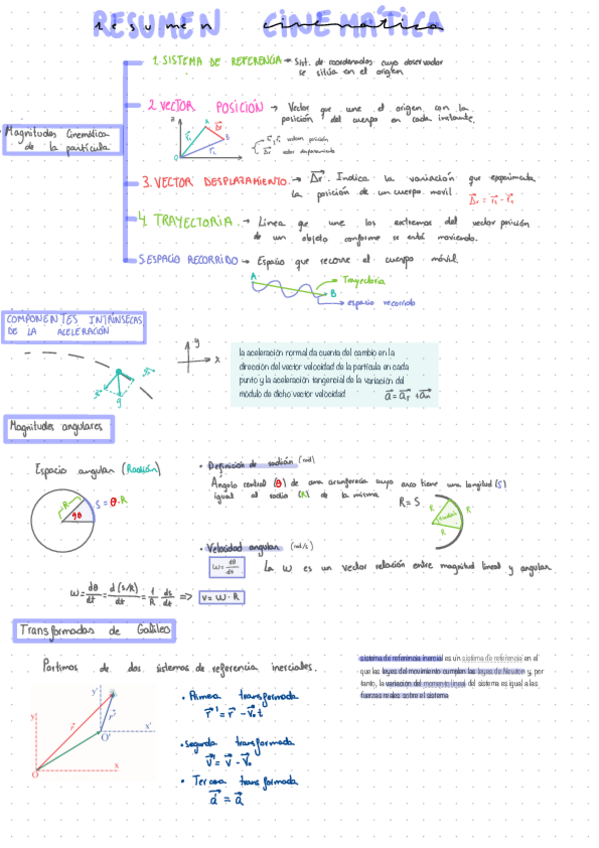 RESUMEN CINEMÁTICA
1. SISTEMA DE REFERENCIA → Sist. de coordenadas cuyo observador
se sitúa en el origen
2. VECTOR POSICIÓN → Vector que une el origen con la
posición del cuerpo en cada instante.
Magnitudes Cinemática
de la partícula
vectores posición
Δr vector desplazamiento
3. VECTOR DESPLAZAMIENTO → Δr. Indica la variación que experimenta
la posición de un cuerpo móvil.
4. TRAYECTORIA → Línea que une los extremos del vector posición
de un objeto conforme se está moviendo.
5. ESPACIO RECORRIDO → Espacio que recorre el cuerpo móvil.
A
→ Trayectoria
B
→ espacio recorrido
COMPONENTES INTRÍNSECAS
DE LA ACELERACIÓN
y
x
la aceleración normal da cuenta del cambio en la
dirección del vector velocidad de la partícula en cada
punto y la aceleración tangencial de la variación del
módulo de dicho vector velocidad
Magnitudes angulares
Espacio angular (Radián)
S = θ.R
• Definición de radián (rad)
Ángulo central (θ) de una circunferencia cuyo arco tiene una longitud (S)
igual al radio (R) de la misma
R = S
• Velocidad angular (rad/s)
ω = dθ/dt
La ω es un vector relación entre magnitud lineal y angular.
ω = dθ/dt = d(s/R)/dt = 1/R ds/dt => v = ω · R
Transformadas de Galileo
Partimos de dos sistemas de referencia inerciales.
sistema de referencia inercial es un sistema de referencia en el
que las leyes del movimiento cumplen las leyes de Newton y, por
tanto, la variación del momento lineal del sistema es igual a las
fuerzas reales sobre el sistema
y
y'
r
r'
O'
x'
O
x
• Primera transformada
r' = r - v₀t
• segunda transformada
v' = v - v₀
• Tercera transformada
a' = a